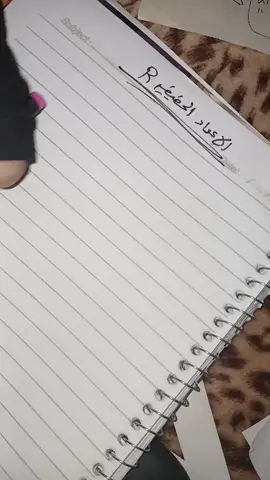 Subject:
الاعداد الحقيقية R